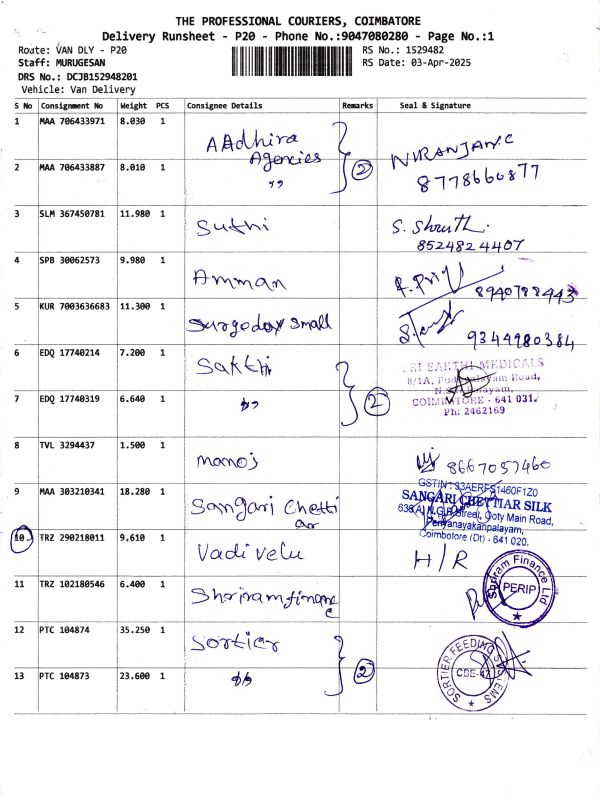 THE PROFESSIONAL COURIERS, COIMBATORE
Delivery Runsheet - P20 - Phone No.:9047080280 - Page No.:1
Route: VAN DLY - P20
RS No.: 1529482
Staff: MURUGESAN
RS Date: 03-Apr-2025
DRS No.: DCJB152948201
Vehicle: Van Delivery
S No Consignment No Weight PCS Consignee Details Remarks Seal & Signature
1 MAA 706433971 8.030 1 AAdhira Agencies NIRANJAN.C
2 MAA 706433887 8.010 1 " 2 8778660877
3 SLM 367450781 11.980 1 Suthi S. Shruthi. 8524824407
4 SPB 30062573 9.980 1 Amman 8940788443
5 KUR 7003636683 11.300 1 small 9344980384
6 EDQ 17740214 7.200 1 Sakthi SRI SAKTHI MEDICALS
8/1A, Road,
7 EDQ 17740319 6.640 1 " 2 COIMBATORE - 641 031.
Ph: 2462169
8 TVL 3294437 1.500 1 manoj 8667057460
9 MAA 303210341 18.280 1 Sangari Chettiar
GSTIN : 33AERFS1460F1Z0
SANGARI CHETTIAR SILK
Street, Ooty Main Road,
Periyanayakanpalayam,
Coimbatore (Dt) - 641 020.
10. TRZ 290218011 9.610 1 Vadivelu H/R
11 TRZ 102180546 6.400 1 Shriram finance Shriram Finance Ltd PERIP
12 PTC 104874 35.250 1 Sortier
13 PTC 104873 23.600 1 " 2 SORTIER FEEDING SYSTEMS CBE-47